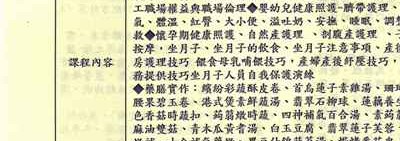 工職場權益與職場倫理◆嬰幼兒健康照護-臍帶護理、
氣、體溫、紅臀、大小便、溢吐奶、安撫、睡眠、調整
救◆懷孕期健康照護、自然產護理、剖腹產護理、子
按摩，坐月子、坐月子的飲食、坐月子注意事項、產後
課程內容
房護理技巧 餵食母乳哺餵技巧，產婦產後紓壓技巧，
務提供技巧坐月子人員自我保護演練
◆藥膳實作：繽紛彩蔬酥皮卷、首烏蓮子素雞湯、珊瑚
腰果碧玉卷、港式煲素鮮蔬湯、翡翠石柳球、蓮藕養生
色香菇時蔬扣、蒟蒻燉時蔬、四神補氣百合湯、素蒟蒻
麻油雙菇、青木瓜黃耆湯、白玉豆腐、翡翠蓮子芙蓉